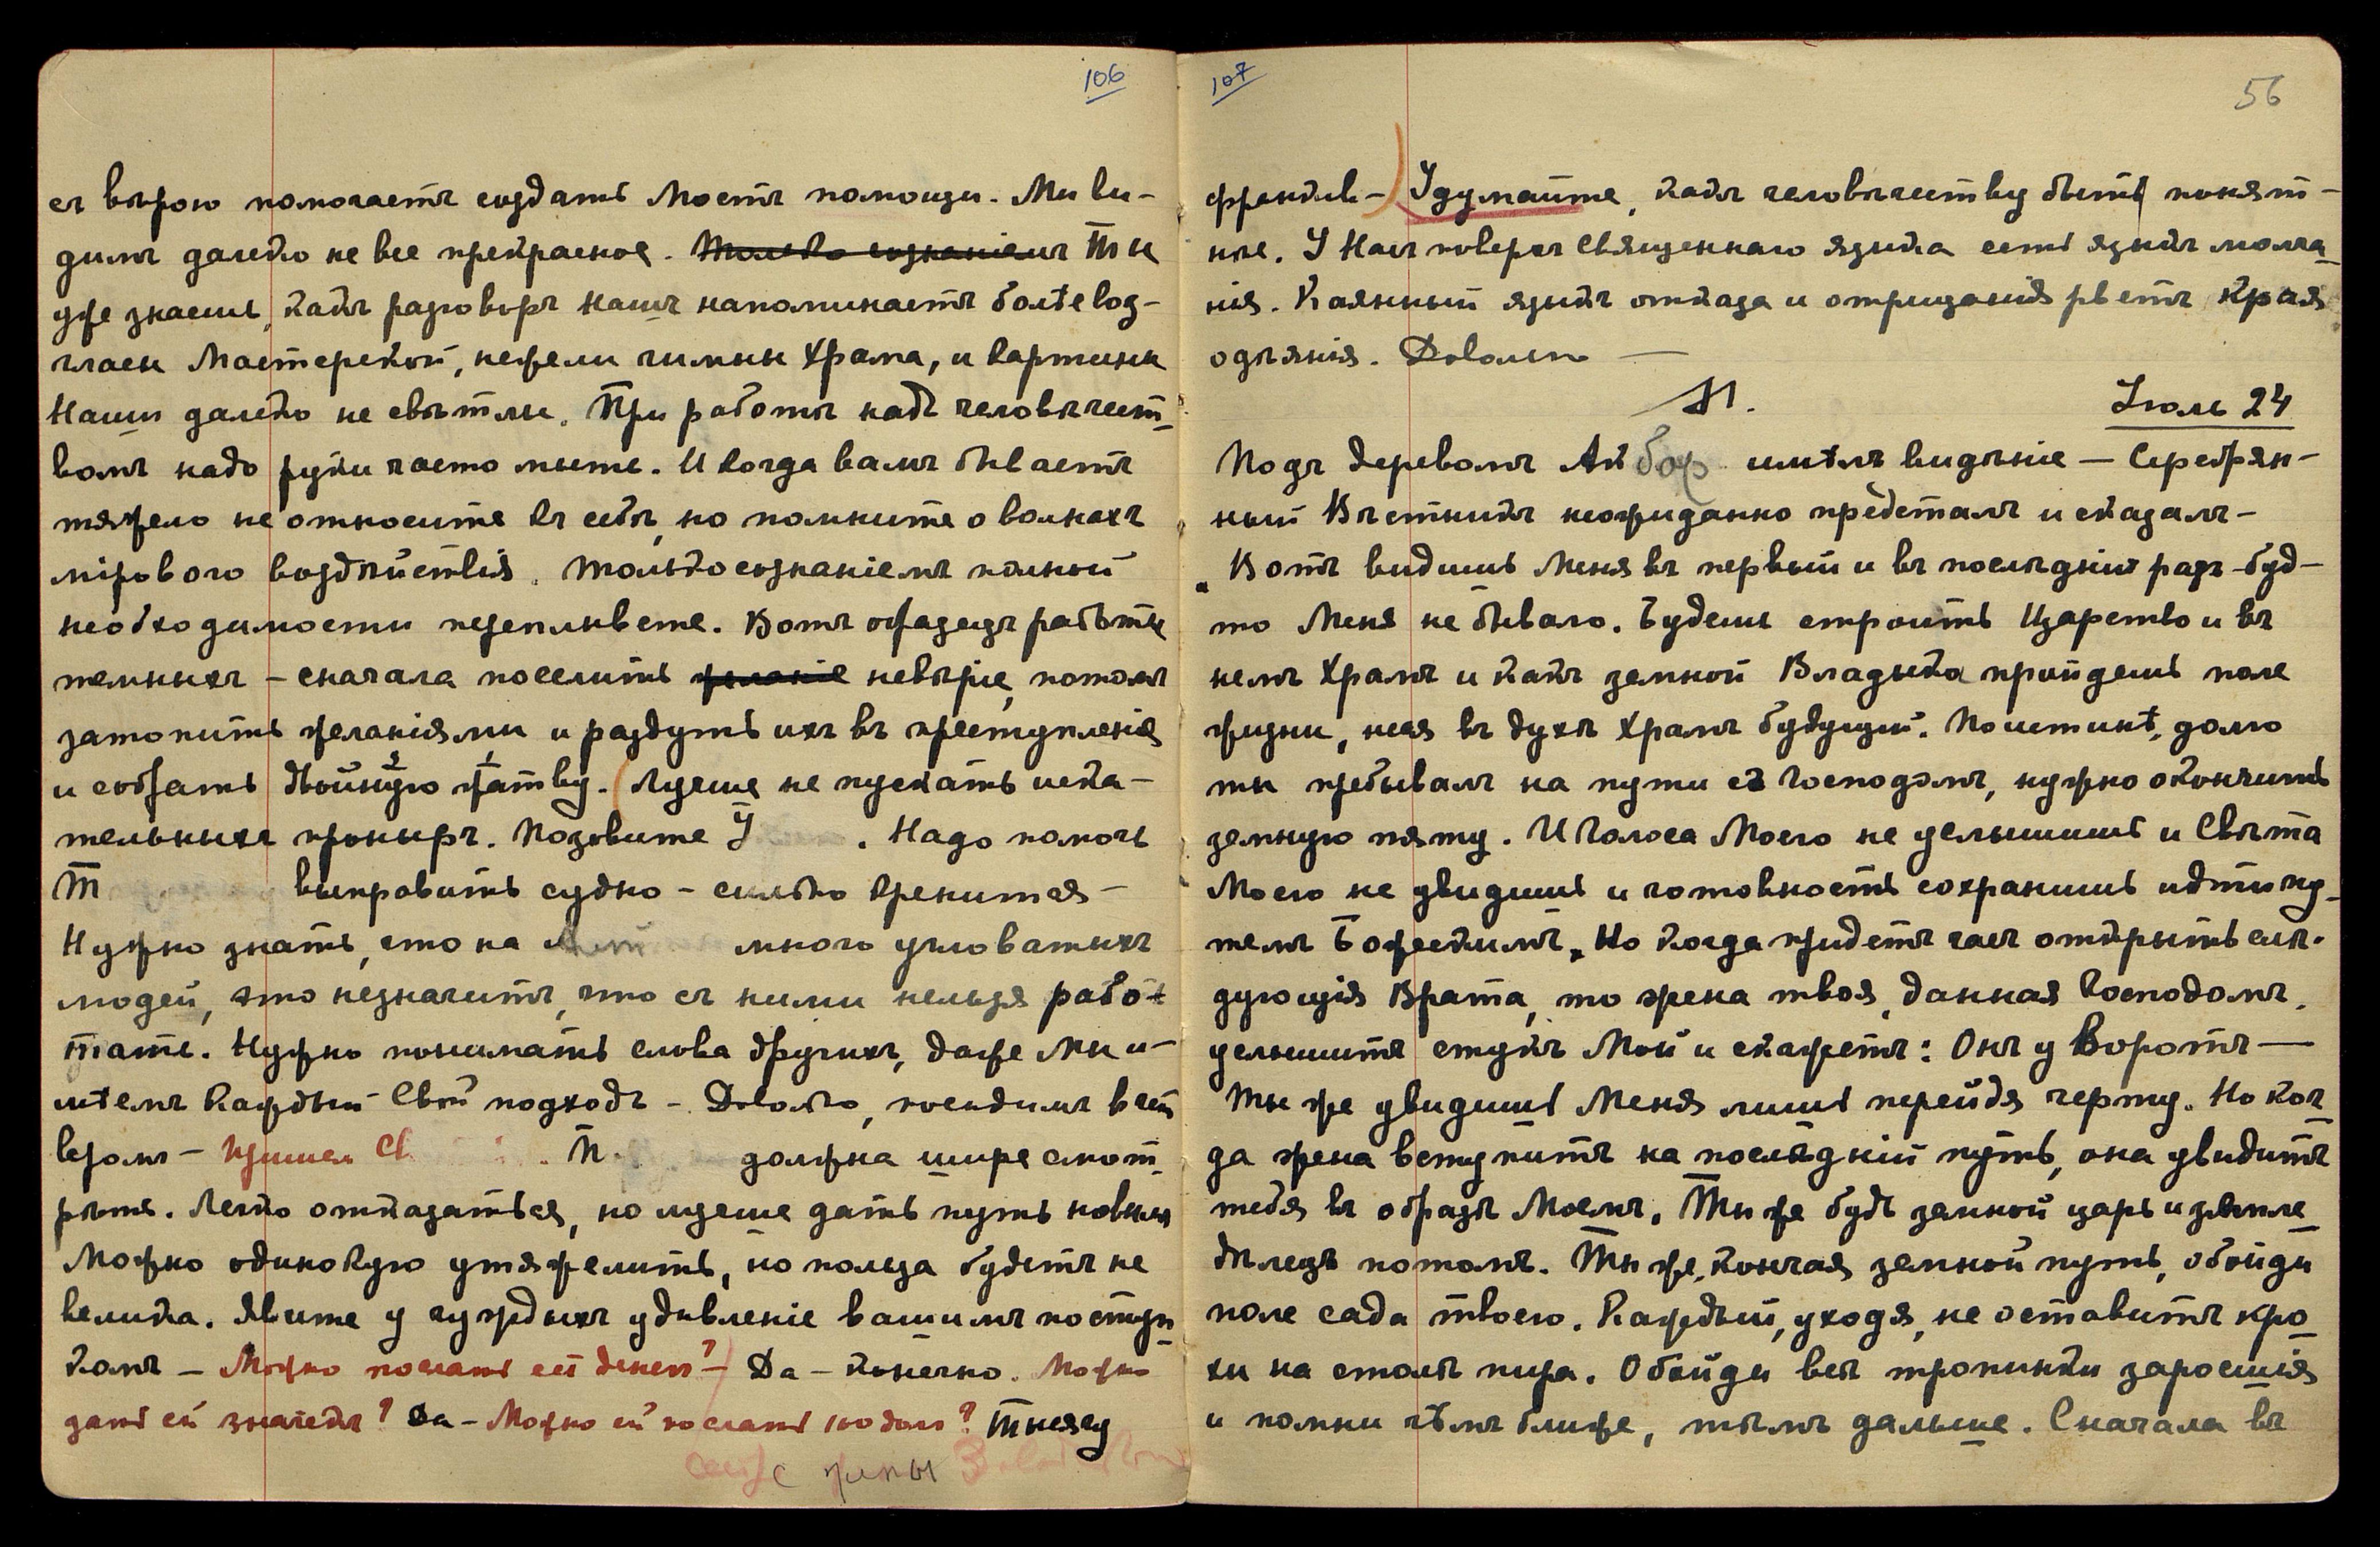 106
съ вѣрою помогаетъ создать Мостъ помощи. Мы ви-
димъ далеко не все прекрасное. Только сознаніемъ Ты
уже знаешь, какъ разговоръ Нашъ напоминаетъ болѣе воз-
гласы Мастерской, нежели гимны Храма, и Картины
Наши далеко не свѣтлы. При работѣ надъ человѣчест-
вомъ надо руки часто мыть. И когда вамъ бываетъ
тяжело не относите къ себѣ, но помните о волнахъ
мірового воздѣйствія. Только сознаніемъ полной
необходимости переплывете. Вотъ образецъ работы
темныхъ – сначала поселить желаніе невѣріе, потомъ
затопить желаніями и раздуть ихъ въ преступленія
и собрать двойную жатву. Лучше не пускать иска-
тельныхъ проныръ. Позовите У . Надо помочь
Т выправить судно – сильно кренится –
Нужно знать, что на много угловатыхъ
людей, это незначитъ, что съ ними нельзя рабо-
тать. Нужно понимать слова другихъ, даже Мы и-
мѣемъ Каждый Свой подходъ – Довольно, посидимъ вчет
веромъ – Пришел С П. должна шире смот-
рѣть. Легко отказаться, но лучше дать путь новымъ
Можно одинокую утяжелить, но польза будетъ не
велика. Явите у чуждыхъ удивленіе вашимъ поступ
камъ – Можно послать ей денег? – Да – конечно. Можно
дать ей значекъ? Да – Можно ей послать 100 долл? Тысячу
жены
107
56
франков – Удумайте, какъ человѣчеству быть понят-
нѣе. У Насъ поверхъ Священнаго языка есть языкъ молча-
нія. Каянный языкъ отказа и отрицанія рветъ края
одѣянія. Довольно —
М.
Іюль 24
Подъ деревомъ Акбар имѣлъ видѣніе – Серебрян-
ный Вѣстникъ неожиданно предсталъ и сказалъ –
„Вотъ видишь Меня въ первый и въ послѣдній разъ – буд-
то Меня не бывало. Будешь строить Царство и въ
немъ Храмъ и какъ земной Владыка пройдешь поле
жизни, неся въ духѣ Храмъ будущій. Поистинѣ, долго
ты пребывалъ на пути съ Господомъ, нужно окончить
земную пяту. И Голоса Моего не услышишь и Свѣта
Моего не увидишь и готовность сохранишь идти пу-
темъ Божескимъ. Но когда придетъ часъ открыть слѣ-
дующія Врата, то жена твоя, данная Господомъ,
услышитъ стукъ Мой и скажетъ: Онъ у Воротъ —
Ты же увидишь Меня лишь перейдя черту. Но ког
да жена вступитъ на послѣдній путь, она увидитъ
тебя въ образѣ Моемъ. Ты же будь земной царь и земле
дѣлецъ потомъ. Ты же, кончая земной путь, обойди
поле сада твоего. Каждый, уходя, не оставитъ кро
хи на столѣ пира. Обойди всѣ тропинки заросшія
и помни чѣмъ ближе, тѣмъ дальше. Сначала въ